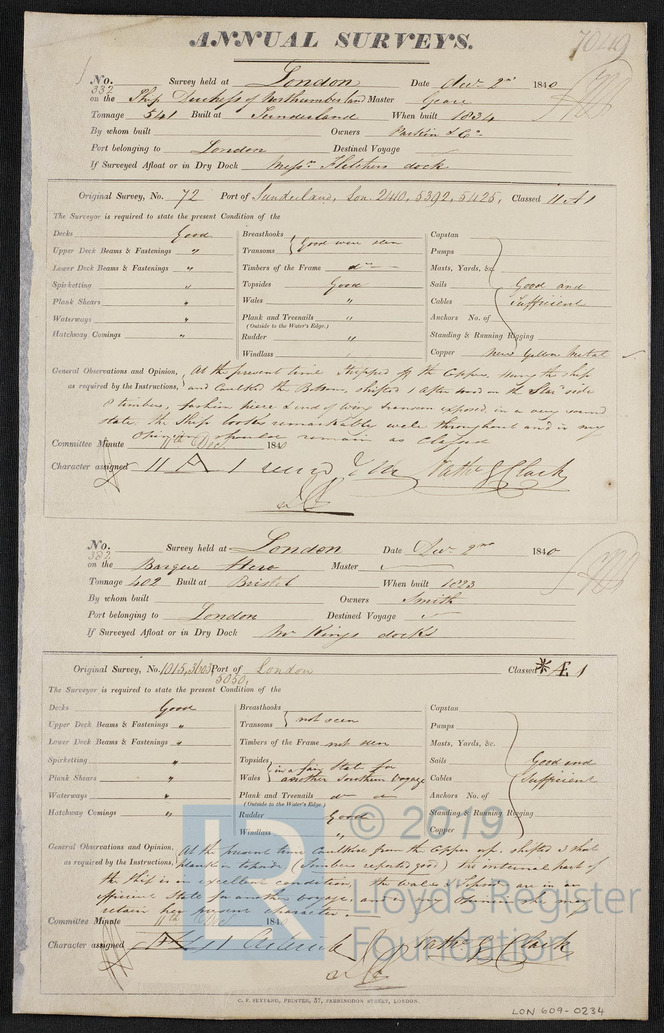 ANNUAL SURVEYS.
70419
No. 332 Survey held at London Date Dec 2nd 1840
on the Ship Duchess of Northumberland Master Geare
Tonnage 541 Built at Sunderland When built 1834
By whom built Owners Parkin & Co
Port belonging to London Destined Voyage
If Surveyed Afloat or in Dry Dock Messrs Fletchers dock
Original Survey, No. 72 Port of Sunderland, Lon. 2410, 5392, 5425, Classed 11 A 1
The Surveyor is required to state the present Condition of the
Decks Good Breasthooks Capstan
Upper Deck Beams & Fastenings " Transoms Good were seen Pumps
Lower Deck Beams & Fastenings " Timbers of the Frame do Masts, Yards, &c.
Spirketting " Topsides Good Sails Good and
Plank Shears " Wales " Cables Sufficient
Waterways " Plank and Treenails " Anchors No. of
(Outside to the Water's Edge.)
Hatchway Comings " Rudder " Standing & Running Rigging
Windlass Copper New Yellow Metal
General Observations and Opinion, At the present time Stripped off the Copper, the ship
as required by the Instructions, and Caulked the Bottom, shifted 1 after hood on the Star side
& timbers, fashion piece & end of wing transom exposed, in a very sound
state, the Ship looks remarkably well throughout and in my
Opinion should remain as Classed
Committee Minute 11th Dec 1840
Character assigned 11 A 1 Nathl G Clark
No. 332 Survey held at London Date Dec 2nd 1840
on the Barque Hero Master
Tonnage 402 Built at Bristol When built 1823
By whom built Owners Smith
Port belonging to London Destined Voyage
If Surveyed Afloat or in Dry Dock Mr Kings docks
Original Survey, No. 1015, 3603, Port of London Classed Æ 1
5050,
The Surveyor is required to state the present Condition of the
Decks Good Breasthooks Capstan
Upper Deck Beams & Fastenings " Transoms not seen Pumps
Lower Deck Beams & Fastenings " Timbers of the Frame not seen Masts, Yards, &c.
Spirketting " Topsides in a fair State for Sails Good and
Plank Shears " Wales another Southern Voyage Cables Sufficient
Waterways " Plank and Treenails do do Anchors No. of
(Outside to the Water's Edge.)
Hatchway Comings " Rudder Good Standing & Running Rigging
Windlass " Copper
General Observations and Opinion, At the present time Caulked from the Copper up, shifted 3 shot
as required by the Instructions, plank in topsides (Timbers reported good) the internal part of
the Ship is in excellent condition, the wales & Topsides are in an
efficient State for another voyage, and in my Opinion she may
retain her present character
Committee Minute 184
Character assigned Nathl G Clark
© 2019
LR
Lloyd's Register
Foundation
C. F. SEYFANG, PRINTER, 57, FARRINGDON STREET, LONDON.
LON 609-0234